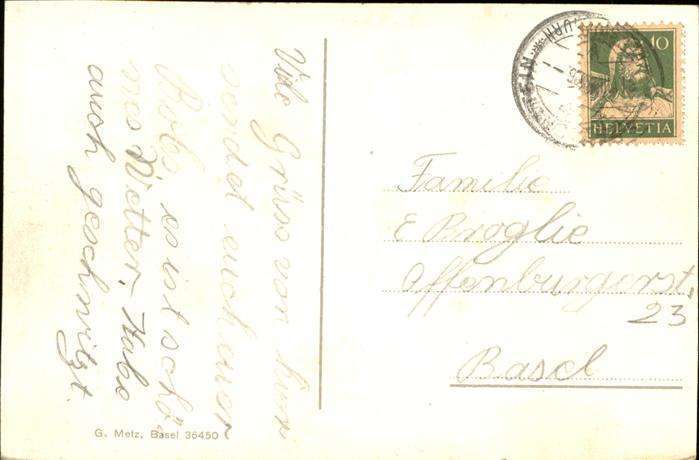 Viele Grüsse von hier
sendet euch euer
Robs es ist schö-
nes Wetter, Habe
auch geschwitzt.
G. Metz, Basel 35450
10
HELVETIA
Familie
E Broglie
Offenburgerst.
23
Basel